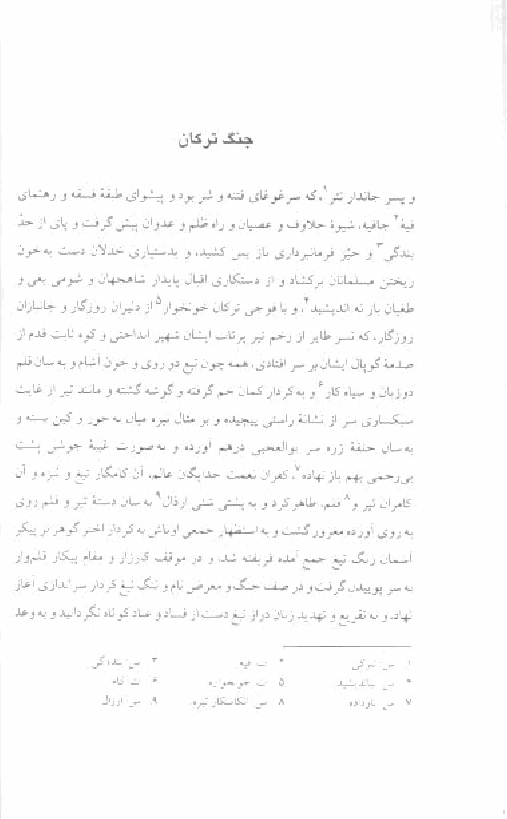 جنگ ترکان
و پسر جاندار تتر¹، که سر غوغای فتنه و شر بود و پیشوای طبقهٔ فسقه و رهنمای
فیهٔ² جافیه، شیوهٔ خلاف و عصیان و راه ظلم و عدوان پیش گرفت و پای از حدّ
بندگی³ و حیّز فرمانبرداری باز پس کشید، و بدستیاری خذلان دست به خون
ریختن مسلمانان برکشاد و از دستکاری اقبال پایدار شاهجهان و شومی بغی و
طغیان باز نه اندیشید⁴، و با فوجی ترکان خونخوار⁵ از دلیران روزگار و جانبازان
روزگار، که نسر طایر از زخم تیر پرتاب ایشان شهپر انداختی و کوه ثابت قدم از
صدمهٔ کوپال ایشان بر سر افتادی، همه چون تیغ دو روی و خون آشام و به سان قلم
دو زبان و سیاه کار⁶ و به کردار کمان خم گرفته و گوشه گشته و مانند تیر از غایت
سبکساری سر از نشانهٔ راستی پیچیده و بر مثال نیزه میان به جور و کین بسته و
به سان حلقهٔ زره سر بوالعجبی درهم آورده و به صورت غیبهٔ جوشن پشت
بی‌رحمی بهم باز نهاده⁷، کفران نعمت خدایگان عالم، آن کامگار تیغ و نیزه و آن
کامران تیر و⁸ قلم، ظاهر کرد و به پشتی مشتی ارذال⁹ به سان دستهٔ تیر و قلم روی
به روی آورده مغرور گشت و به استظهار جمعی اوباش به کردار اختر گوهر بر پیکر
آسمان رنگ تیغ جمع آمده فریفته شد، و در موقف کارزار و مقام پیکار قلم‌وار
به سر پوییدن گرفت و در صف جنگ و معرض نام و ننگ تیغ کردار سراندازی آغاز
نهاد، و به تقریع و تهدید زبان دراز تیغ دست از فساد و عناد کوتاه نگردانید و به وعد
۱ س: تترکی ۲ ت: فیه ۳ س: بندیدگی
۴ س: نیاندیشید ۵ ت: خونخواره ۶ ت: کاه
۷ س: باز داده ۸ س: ۹ س: اررال